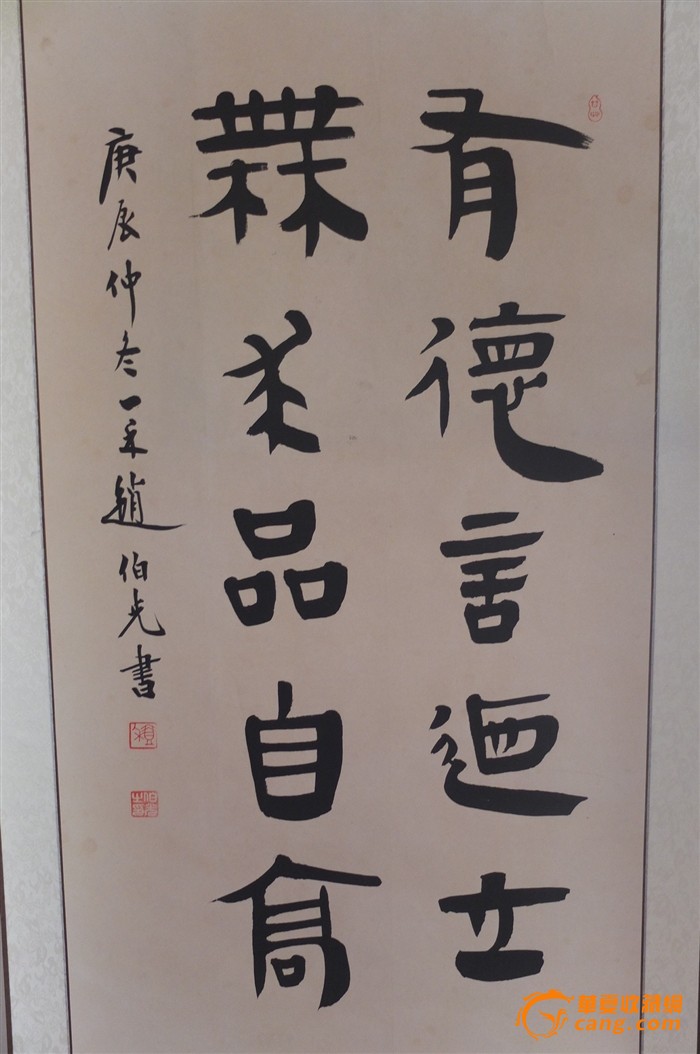 有德言迺立
無求品自高
庚辰仲冬一趙伯光書
華夏收藏網
cang.com